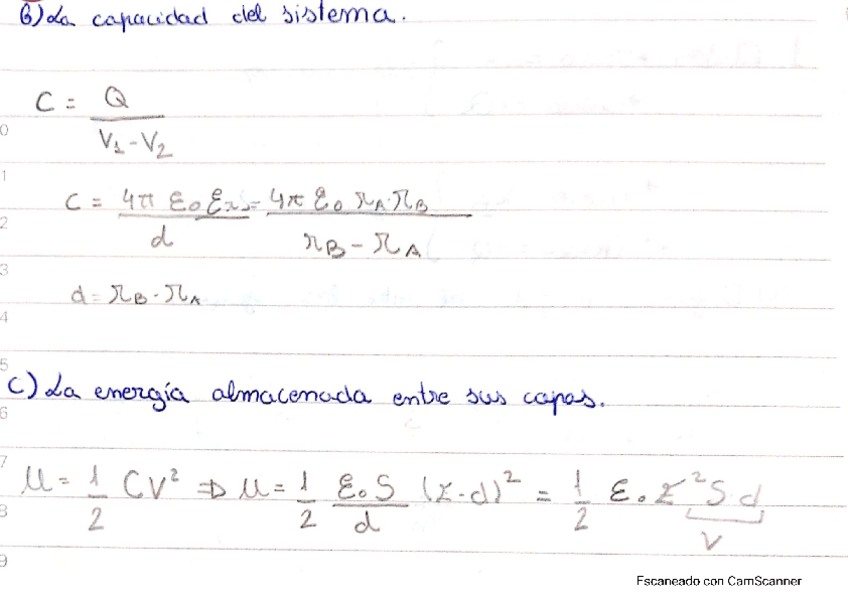 b) La capacidad del sistema.
C = Q / V₁ - V₂
C = 4π ε₀ / d = 4π ε₀ r_A · r_B / r_B - r_A
d = r_B - r_A
C) La energía almacenada entre sus capas.
U = 1/2 CV² ⇒ U = 1/2 ε₀ S / d (E · d)² = 1/2 ε₀ E² S d
V
0
1
2
3
4
5
6
7
8
9
Escaneado con CamScanner